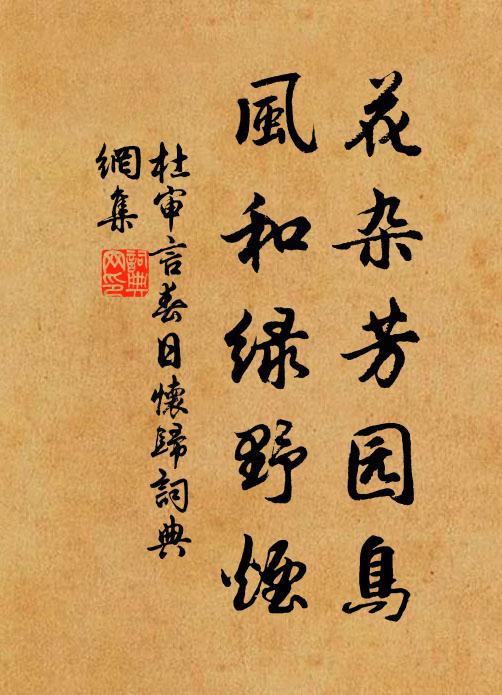 花杂芳园鸟
風和绿野煙
杜审言春日懷歸詞典
網集
詞典
网印